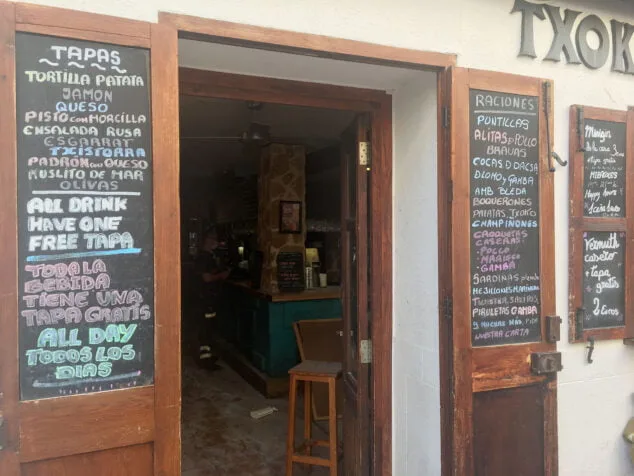 TAPAS
TORTILLA PATATA
JAMON
QUESO
PISTO CON MORCILLA
ENSALADA RUSA
ESGARRAT
TXISTORRA
PADRON CON QUESO
MUSLITO DE MAR
OLIVAS
ALL DRINK
HAVE ONE
FREE TAPA
TODA LA
BEBIDA
TIENE UNA
TAPA GRATIS
ALL DAY
TODOS LOS
DIAS
TXOK
RACIONES
PUNTILLAS
ALITAS DE POLLO
BRAVAS
COCAS D DACSA
DLOMO y GAMBA
AMB BLEDA
BOQUERONES
PATATAS TXOKO
CHAMPIÑONES
CROQUETAS
CASERAS
· POLLO
· MARISCO
· GAMBA
SARDINAS
MEJILLONES MARINERA
PIRULETAS GAMBA
Y MUCHAS MAS, PIDE
NUESTRA CARTA
gratis
Happy
Vermuth
casero
+ Tapa
gratis
2 Euros